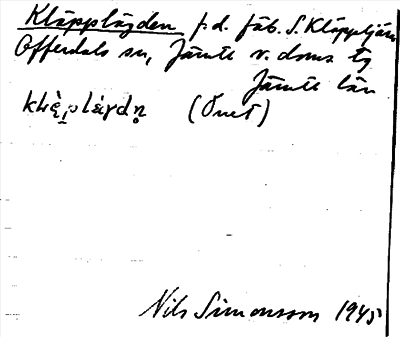 Kläpplägden f.d. fäb. S. Kläpptjärn
Offerdals sn, Jämtl v. doms. tg
Jämtl län
(Önet)
Nils Simonsson 1945